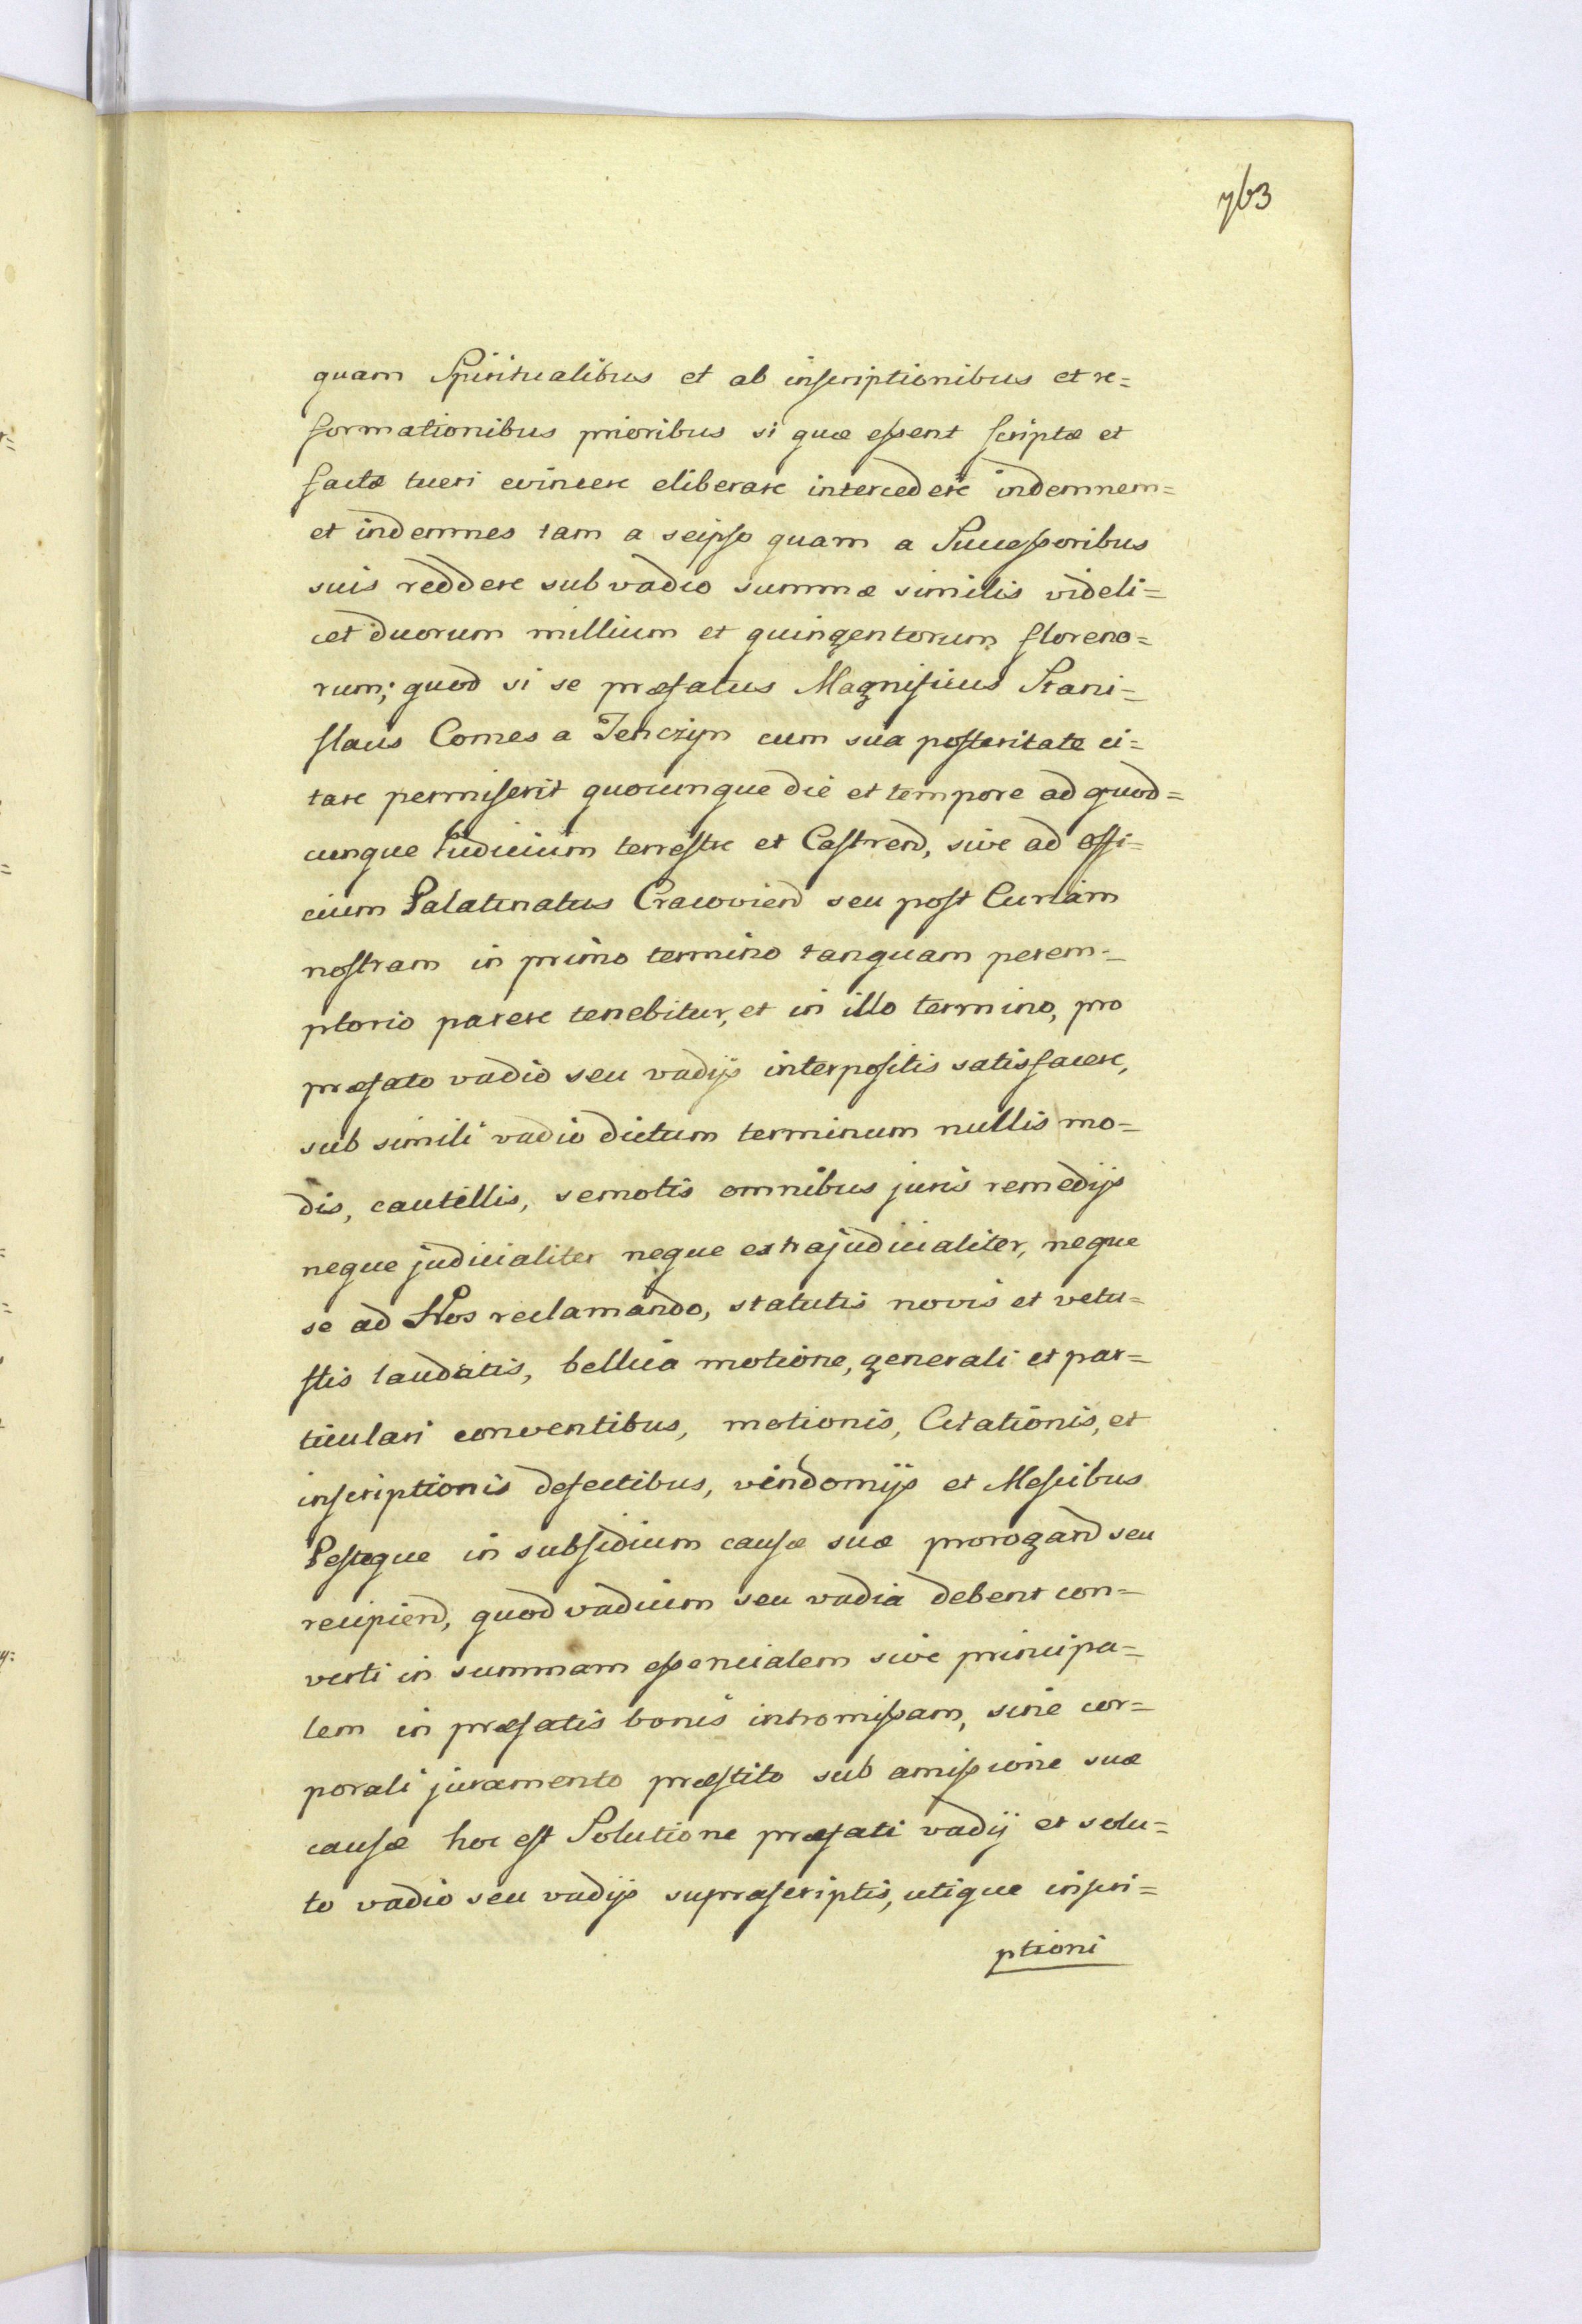 763
quam Spiritualibus et ab inscriptionibus et re=
formationibus prioribus si quæ essent scriptæ et
factæ tueri evincere eliberare intercedere indemnem=
et indemnes tam a seipso quam a Successoribus
suis reddere sub vadio summæ similis videli=
cet duorum millium et quingentorum floreno=
rum; quod si se præfatus Magnificus Stani=
slaus Comes a Tenczyn cum sua posteritate ci=
tare permiserit quocunque die et tempore ad quod=
cunque Iudicium terrestre et Castrend, sive ad offi=
cium Palatinatus Cracoviend seu post Curiam
nostram in primo termino tanquam perem=
ptorio parere tenebitur, et in illo termino, pro
præfato vadio seu vadijs interpositis satisfacere,
sub simili vadio dictum terminum nullis mo=
dis, cautellis, semotis omnibus juris remedijs
neque judicialiter neque extrajudicialiter, neque
se ad Nos reclamando, statutis novis et vetu=
stis laudatis, bellica motione, generali et par=
ticulari conventibus, motionis, Citationis, et
inscriptionis defectibus, vindomijs et Messibus
Pesteque in subsidium causæ suæ prorogand seu
recipiend, quod vadium seu vadia debent con=
verti in summam essencialem sive principa=
lem in præfatis bonis intromissam, sine cor=
porali juramento præstito sub amissione suæ
causæ hoc est Solutione præfati vadij et solu=
to vadio seu vadijs supræscriptis, utique inscri=
ptioni